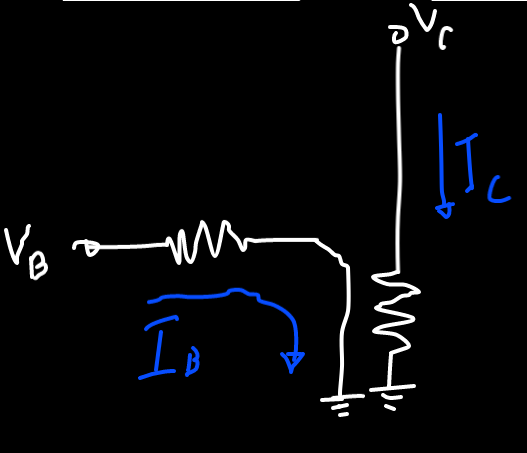 V_C
I_C
V_B
I_B